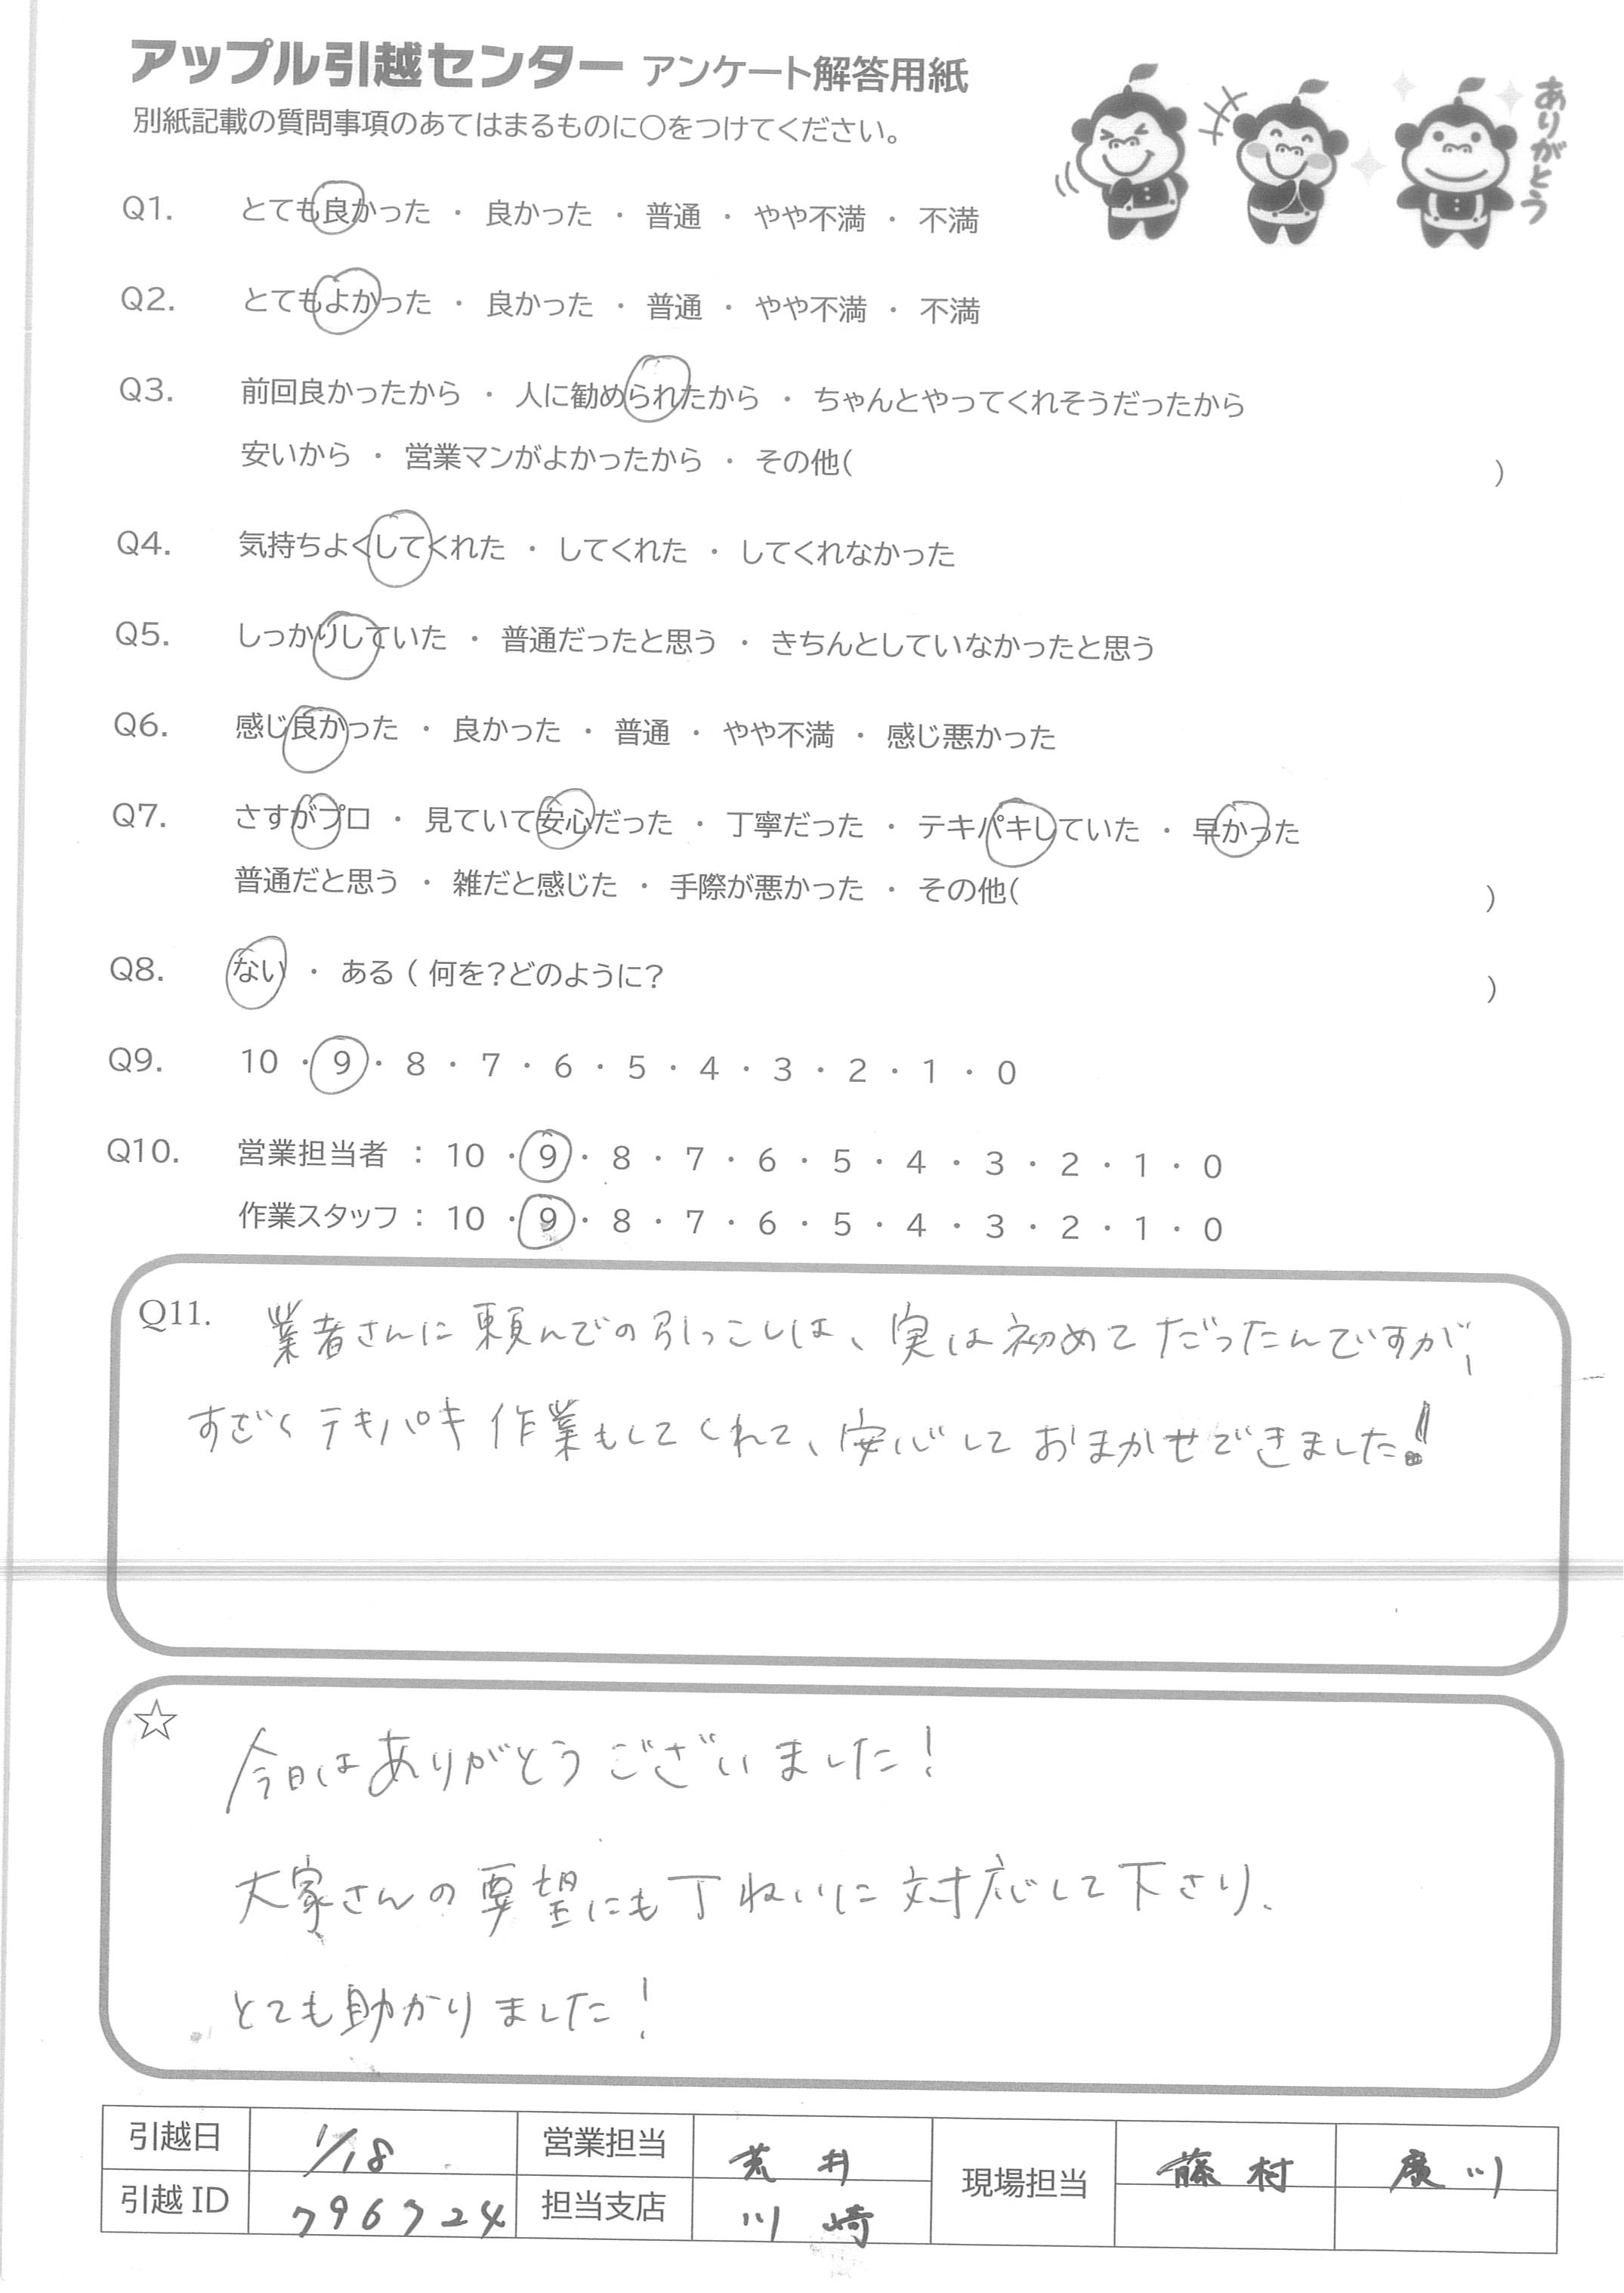 アップル引越センター アンケート解答用紙
別紙記載の質問事項のあてはまるものに○をつけてください。
ありがとう
Q1. とても良かった ・ 良かった ・ 普通 ・ やや不満 ・ 不満
Q2. とてもよかった ・ 良かった ・ 普通 ・ やや不満 ・ 不満
Q3. 前回良かったから ・ 人に勧められたから ・ ちゃんとやってくれそうだったから
安いから ・ 営業マンがよかったから ・ その他( )
Q4. 気持ちよくしてくれた ・ してくれた ・ してくれなかった
Q5. しっかりしていた ・ 普通だったと思う ・ きちんとしていなかったと思う
Q6. 感じ良かった ・ 良かった ・ 普通 ・ やや不満 ・ 感じ悪かった
Q7. さすがプロ ・ 見ていて安心だった ・ 丁寧だった ・ テキパキしていた ・ 早かった
普通だと思う ・ 雑だと感じた ・ 手際が悪かった ・ その他( )
Q8. ない ・ ある ( 何を?どのように? )
Q9. 10 ・ 9 ・ 8 ・ 7 ・ 6 ・ 5 ・ 4 ・ 3 ・ 2 ・ 1 ・ 0
Q10. 営業担当者 : 10 ・ 9 ・ 8 ・ 7 ・ 6 ・ 5 ・ 4 ・ 3 ・ 2 ・ 1 ・ 0
作業スタッフ : 10 ・ 9 ・ 8 ・ 7 ・ 6 ・ 5 ・ 4 ・ 3 ・ 2 ・ 1 ・ 0
Q11. 業者さんに頼んでの引っこしは、実は初めてだったんですが、
すごくテキパキ作業もしてくれて、安心しておまかせできました!!
☆
今日はありがとうございました!
大家さんの要望にも丁ねいに対応して下さり、
とても助かりました!
引越日 1/18 営業担当 荒井 現場担当 藤村 廣川
引越ID 7967324 担当支店 川崎